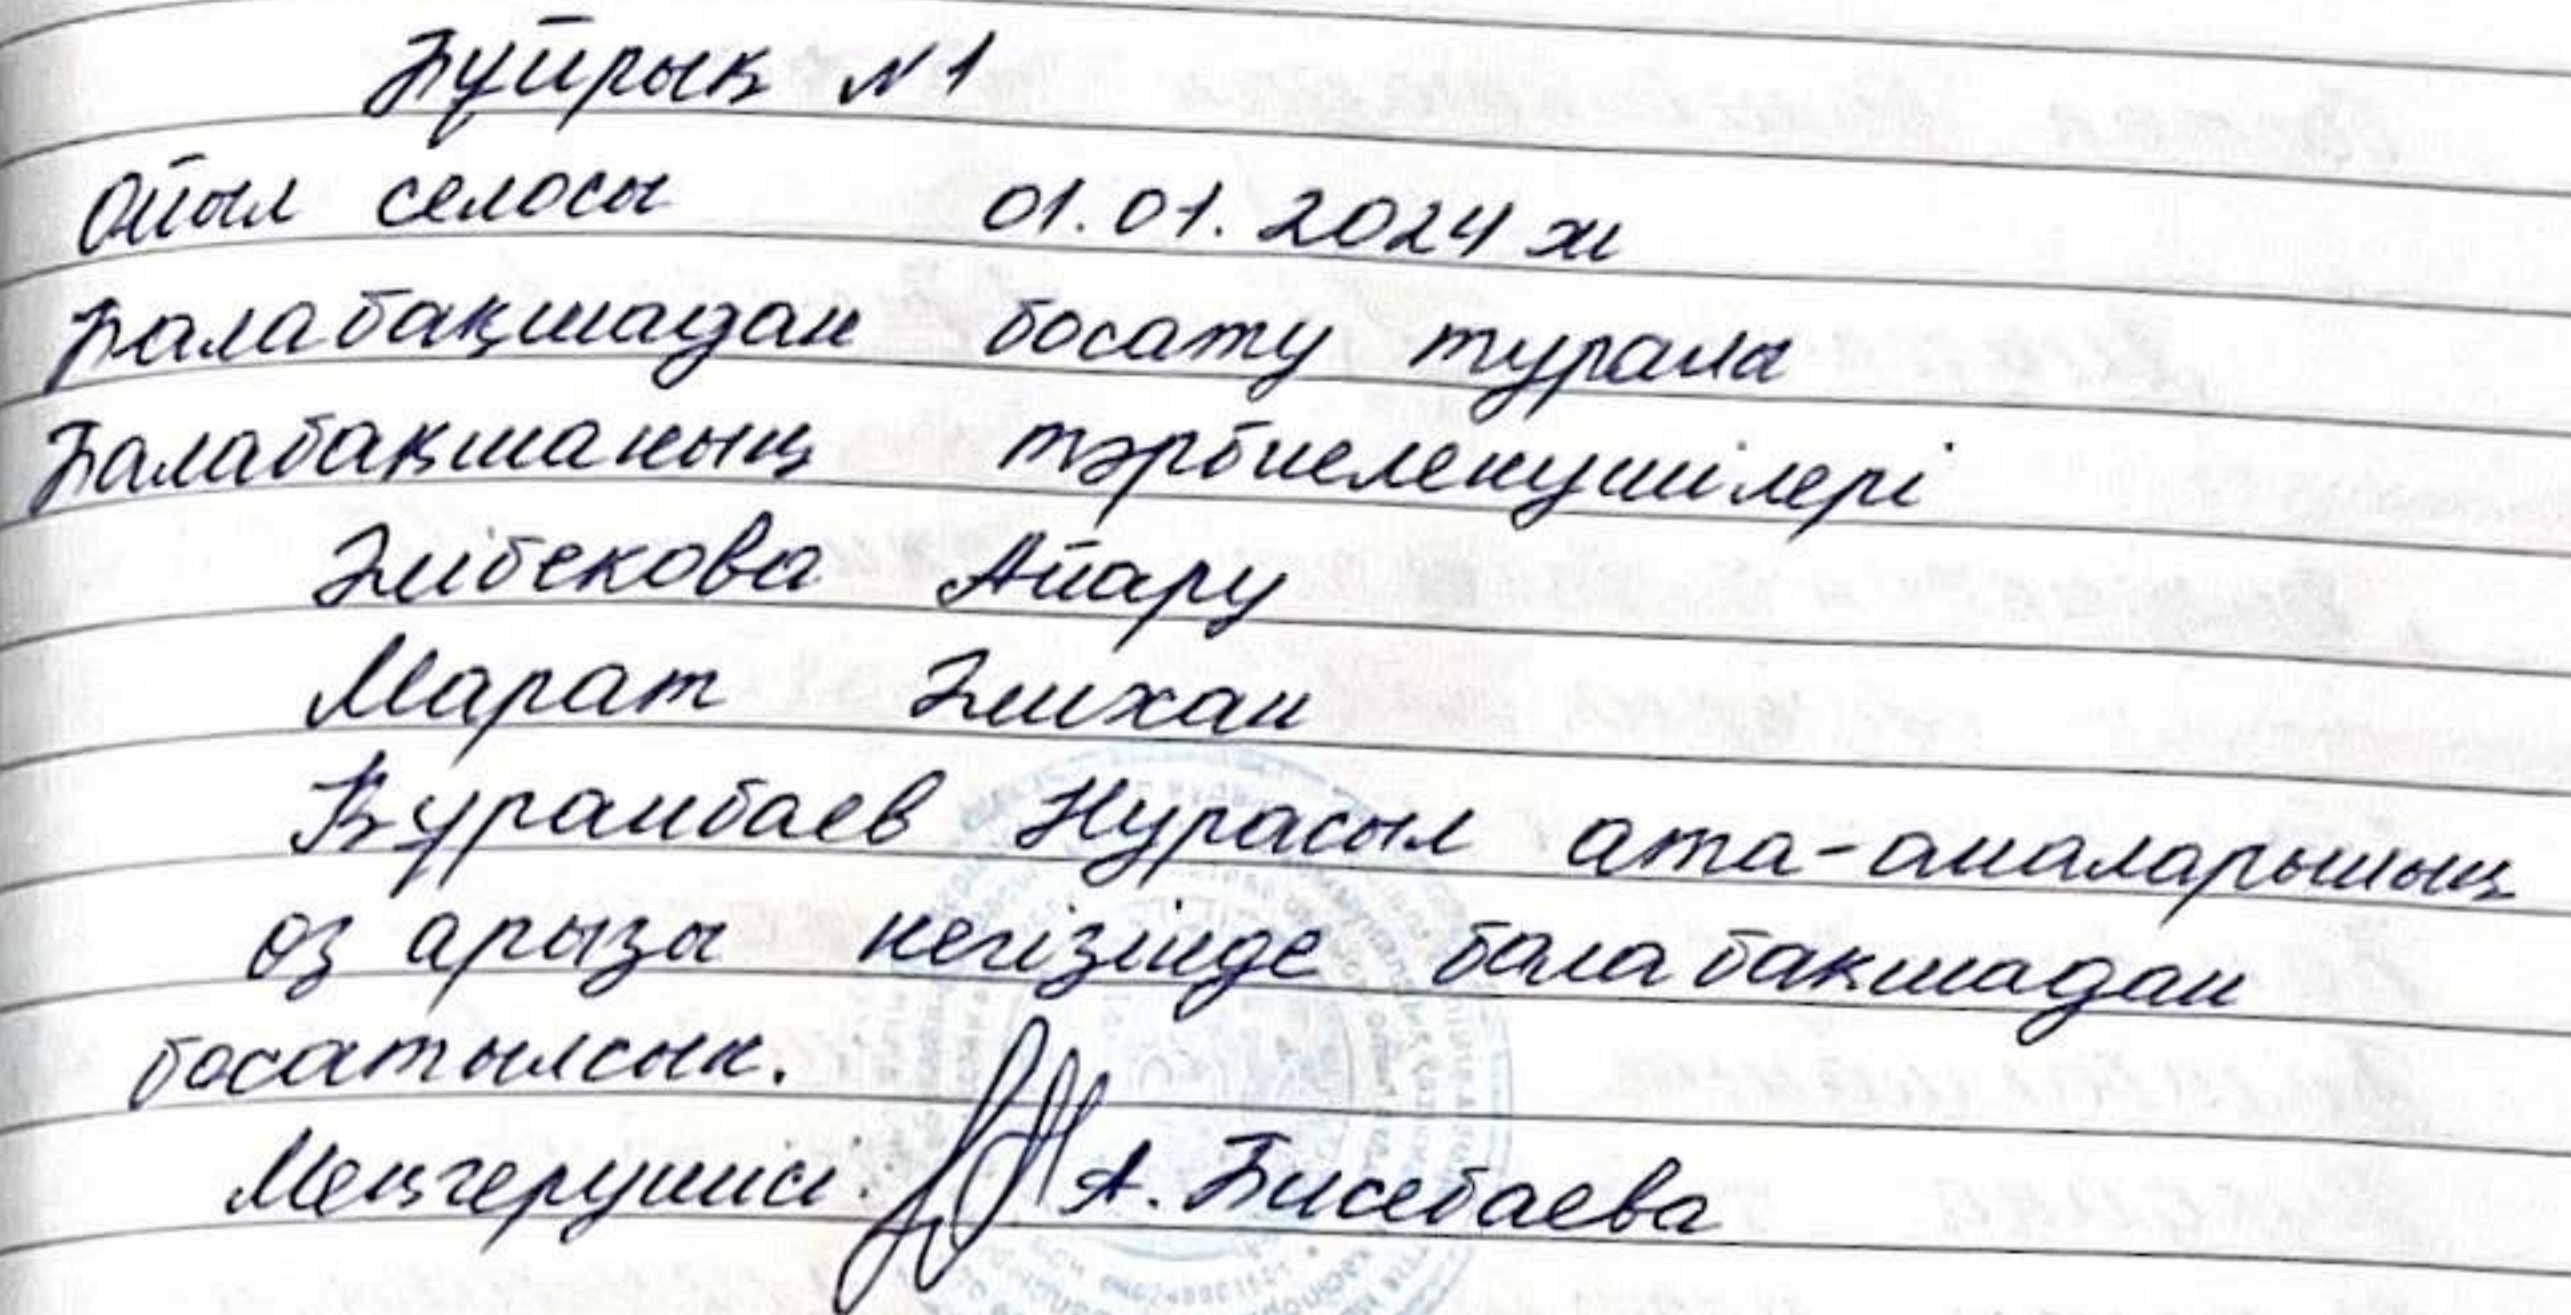 Бұйрық №1
Ойыл селосы 01.01.2024 ж
Балабақшадан босату туралы
Балабақшаның тәрбиеленушілері
Әлібекова Айару
Марат Әлихан
Құранбаев Нұрасыл ата-аналарының
өз арызы негізінде балабақшадан
босатылсын.
Меңгерушісі: А. Бисебаева